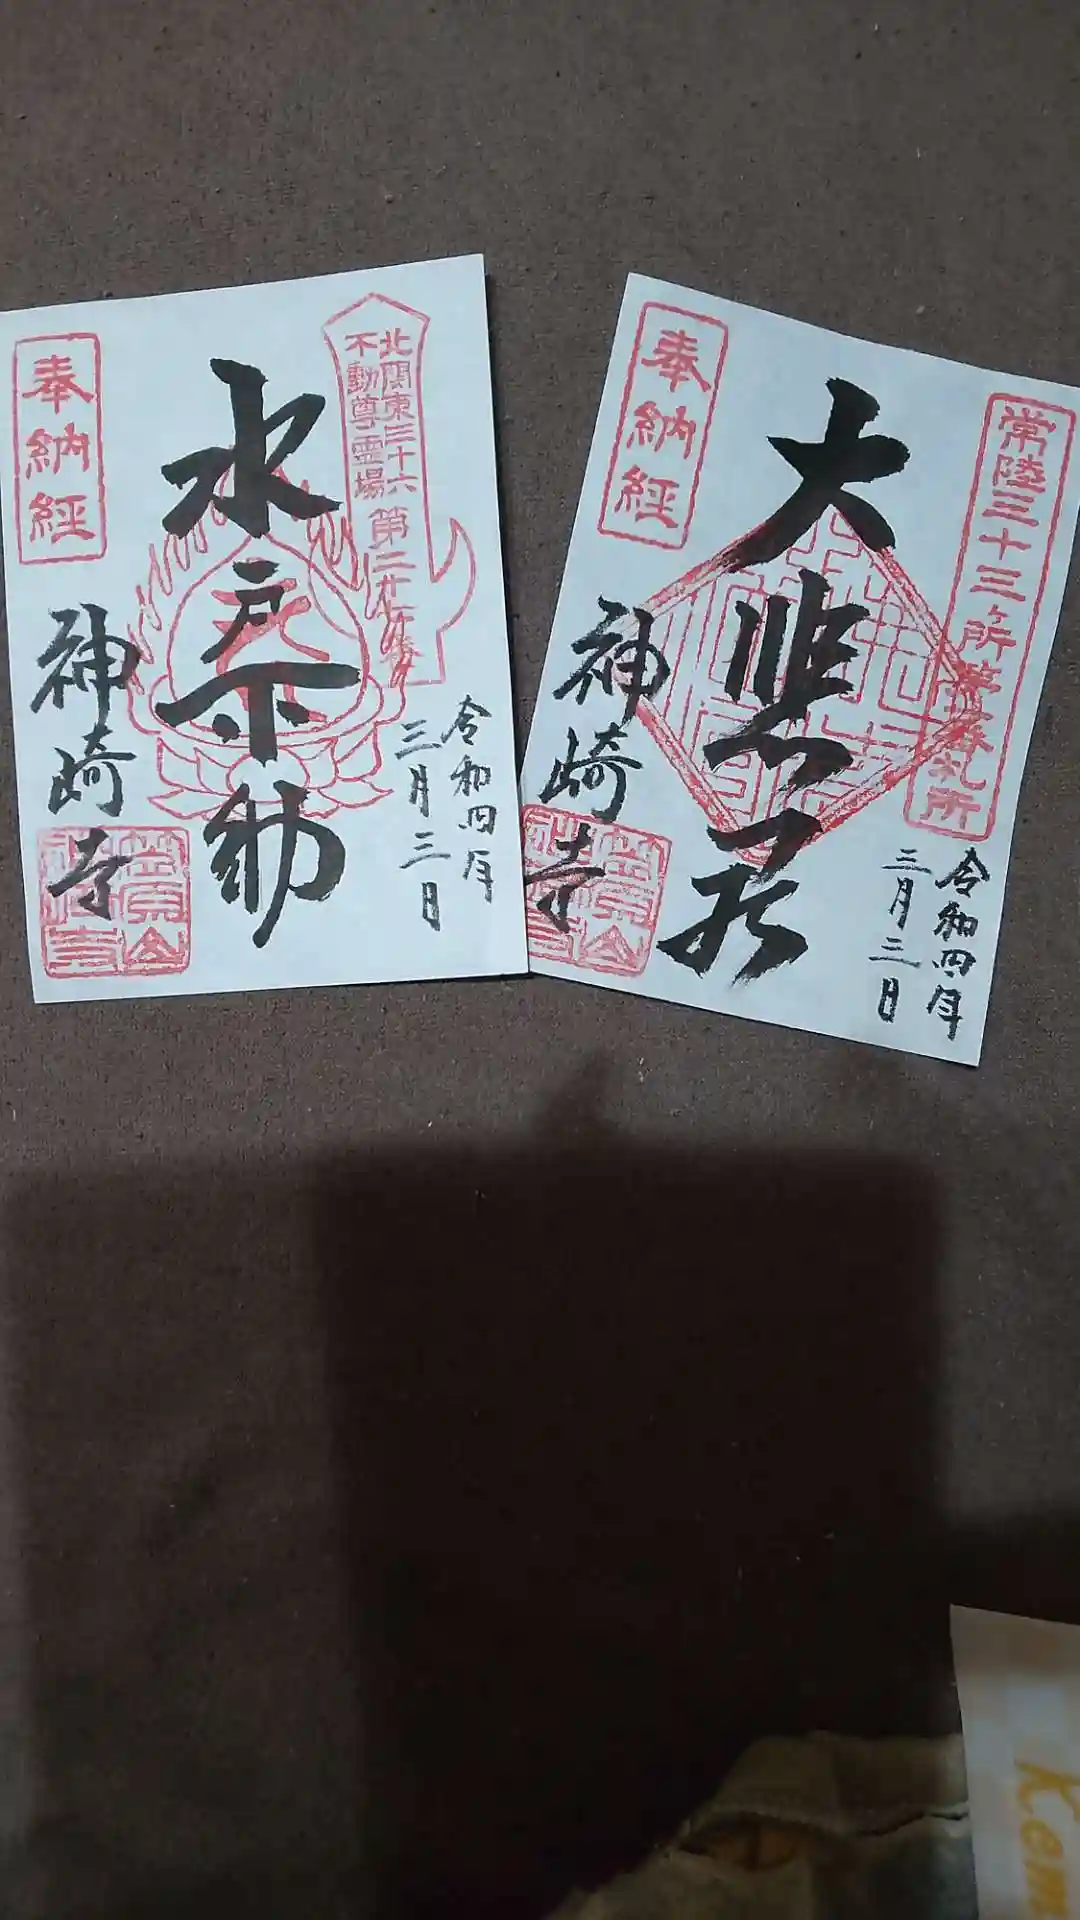 奉納経
水戸不動
北関東三十六
不動尊霊場
神崎寺
令和四年
三月三日
奉納経
大悲殿
常陸三十三ヶ所
番札所
神崎寺
令和四年
三月三日
Kem